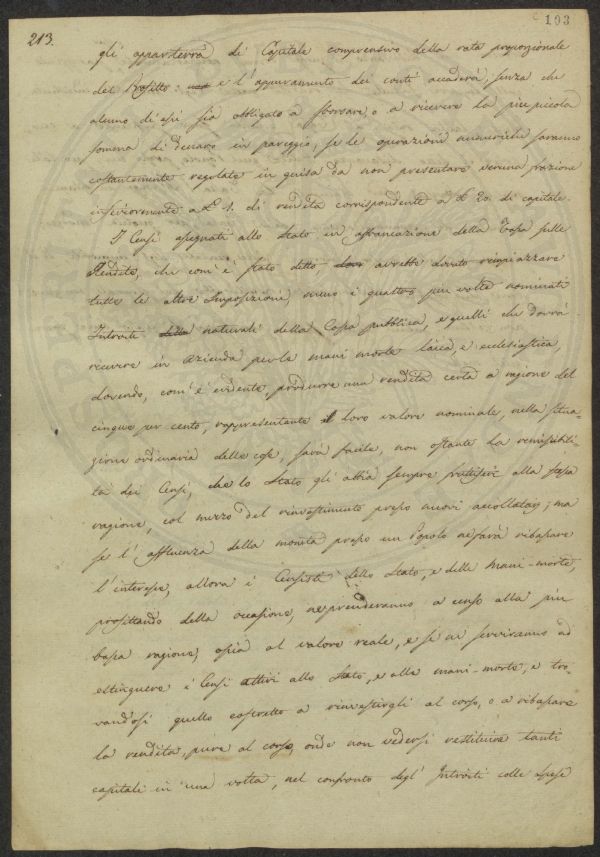 213.
193
gli apparterrà di Capitale comprensivo della rata proporzionale
del Profitto: e l'appuramento dei conti accaderà, senza che
alcuno di essi sia obligato a sborsare, o a ricevere la più piccola
somma di denaro in pareggio, se le operazioni numeriche saranno
costantemente regolate in guisa da non presentare veruna frazione
inferiormente a £ 1. di rendita corrispondente a £ 20. di capitale.
I Censi assegnati allo Stato in affrancazione della Tassa sulle
Rendite, che com'è stato detto avrebbe dovuto rimpiazzare
tutte le altre Imposizioni, meno i quattro più volte nominati
Introiti naturali della Cosa pubblica, e quelli che dovrà
ricevere in azienda per le mani morte laica, e ecclesiastica,
dovendo, com'è evidente, produrre una rendita certa a ragione del
cinque per cento, rappresentante il loro valore nominale, nella situa-
zione ordinaria delle cose, sarà facile, non ostante la remissibili-
tà dei Censi, che lo Stato gli abbia sempre alla fissa
ragione, col mezzo del rinvestimento presso nuovi accollatarj; ma
se l'affluenza della moneta presso un Popolo ne farà ribassare
l'interesse, allora i Censisti dello Stato, e delle Mani-morte,
profittando della occasione, ne prenderanno a censo alla più
bassa ragione, ossia al valore reale, e se ne serviranno ad
estinguere i Censi attivi allo Stato, e alle mani-morte; e tro-
vandosi quello costretto a rinvestirgli al corso, o a ribassare
la rendita, pure al corso, onde non vedersi restituire tanti
capitali in una volta, nel confronto degl'Introiti colle Spese